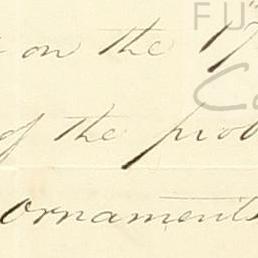 on the 17
of the prob
ornaments